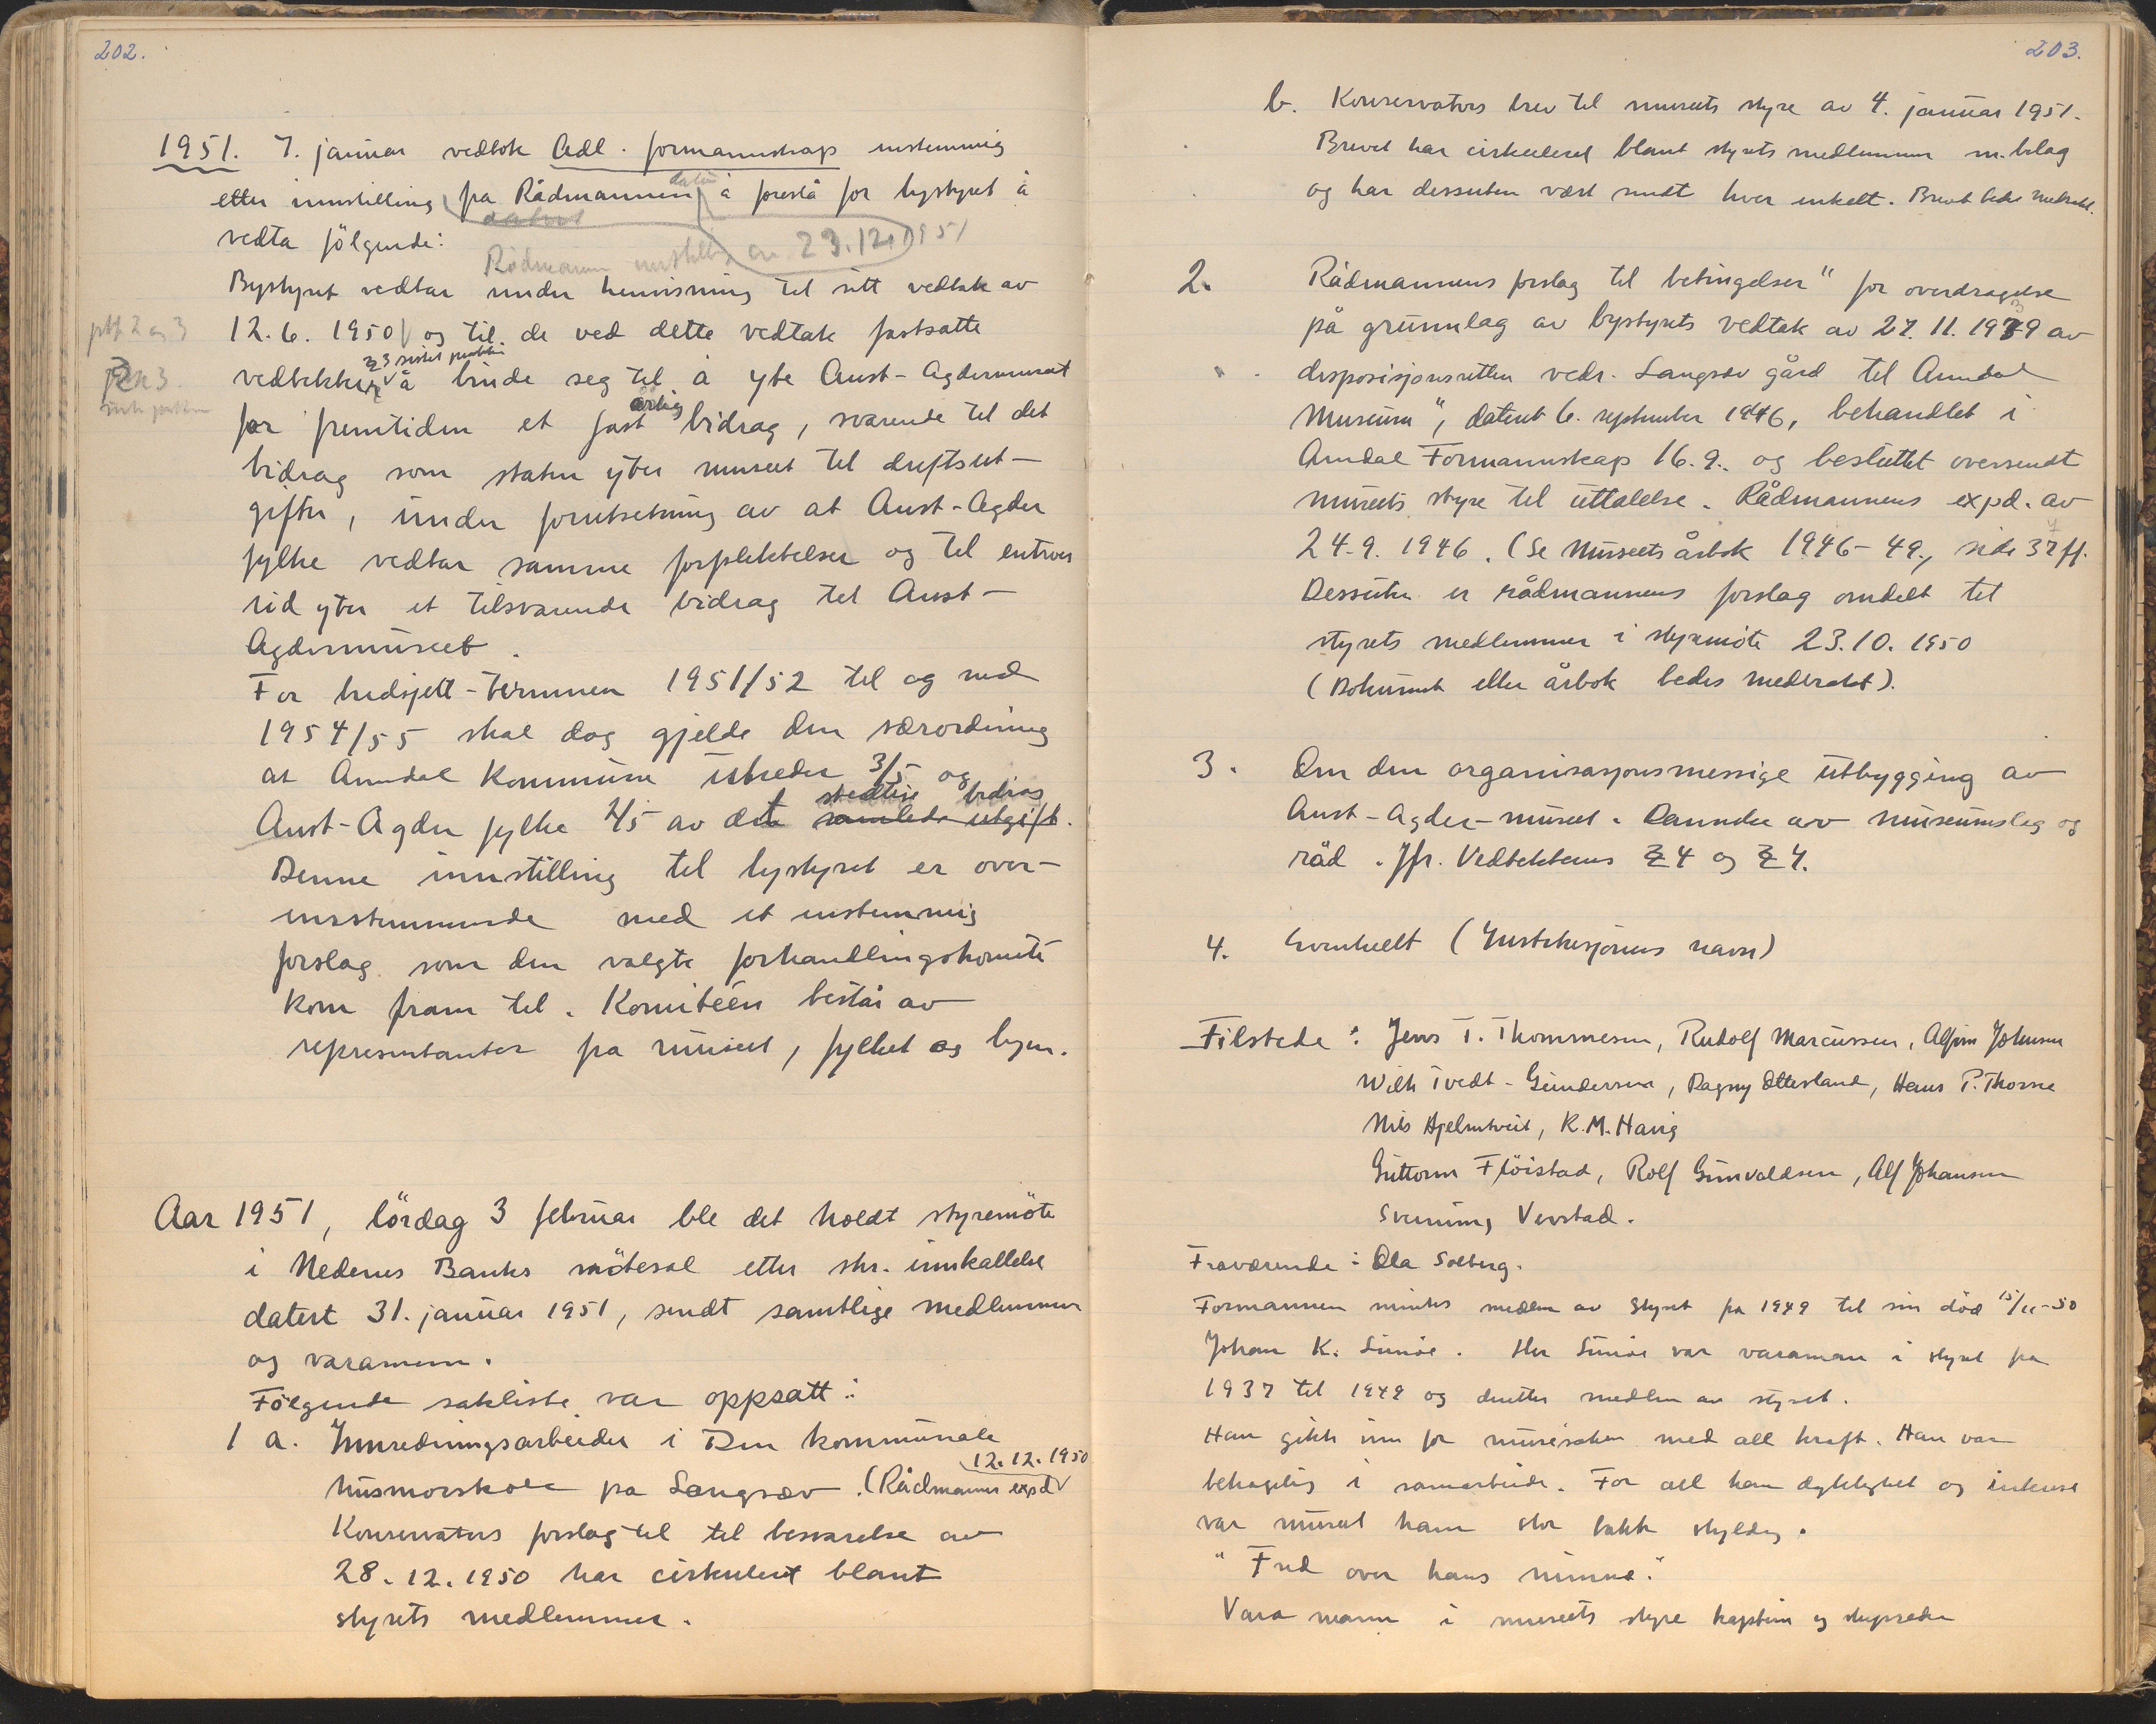 202.
1951. 7. januar vedtok Adl. formannskap enstemmig
etter innstilling fra Rådmannen å foreslå for bystyret å
datert
vedta følgende:
Rådmannens innstilling av 23.12.1951
Bystyret vedtar under henvisning til sitt vedtak av
12.6. 1950 og til de ved dette vedtak fastsatte
§ 3 siste punktum
vedtekter å binde seg til å yte Aust-Agdermuseet
årlig
for fremtiden et fast bidrag, svarende til det
bidrag som staten yter museet til driftsut-
gifter, under forutsetning av at Aust-Agder
fylke vedtar samme forpliktelser og til enhver
tid yter et tilsvarende bidrag til Aust-
Agdermuseet.
For budsjett-terminen 1951/52 til og med
1954/55 skal dog gjelde den særordning
at Arendal kommune utreder 3/5 og
stedlige bidrag
Aust-Agder fylke 2/5 av det samlede utgift.
Denne innstilling til bystyret er over-
ensstemmende med et enstemmig
forslag som den valgte forhandlingskomite
kom fram til. Komitéen består av
representanter fra museet, fylket og byen.
Aar 1951, lördag 3 februar ble det holdt styremöte
i Nedenes Banks mötesal etter skr. innkallelse
datert 31. januar 1951, sendt samtlige medlemmer
og varamenn.
Fölgende sakliste var oppsatt:
1 a. Innredningsarbeider i Den kommunale
12.12.1950
husmorskole på Langsæv. (Rådmannens expd
Konservators forslag til til besvarelse av
28.12.1950 har cirkulert blant
styrets medlemmer.
203.
b. Konservators brev til museets styre av 4. januar 1951.
Brevet har cirkulert blant styrets medlemmer m. bilag
og har dessuten vært sendt hver enkelt. Brevet bedes medtatt.
2. Rådmannens forslag til betingelser" for overdragelse
på grunnlag av bystyrets vedtak av 27.11.1939 av
disposisjonsretten vedr. Langsæv gård til Arendal
Museum", datert 6. september 1946, behandlet i
Arendal Formannskap 16.9. og besluttet oversendt
museets styre til uttalelse. Rådmannens expd. av
24.9. 1946. (Se Museets årbok 1946-49, side 37 ff.
Dessuten er rådmannens forslag omdelt til
styrets medlemmer i styremöte 23.10. 1950
(Dokument eller årbok bedes medbrakt).
3. Om den organisasjonsmessige utbygging av
Aust-Agder-museet. Dannelse av museumslag og
råd. Jfr. Vedtektenes § 4 og § 7.
4. Eventuelt (Institusjonens navn)
Tilstede: Jens T. Thommesen, Rudolf Marcussen, Alfinn Johnsen
Wilh Tvedt-Gundersen, Dagny Ætterland, Hans P. Thorne
Nils Hjelmtveit, K.M. Haug
Guttorm Flöistad, Rolf Gunvaldsen, Alf Johansen
Svenung Vevstad.
Fraværende: Ola Solberg.
Formannen mintes medlem av styret fra 1949 til sin död 15/11-50
Johan K. Simöe. Herr Simöe var varamann i styret fra
1937 til 1949 og deretter medlem av styret.
Han gikk inn for museisaken med all kraft. Han var
behagelig i samarbeide. For all hans dyktighet og interesse
var museet ham stor takk skyldig.
"Fred over hans minne."
Varamann i museets styre kaptein og skipsreder